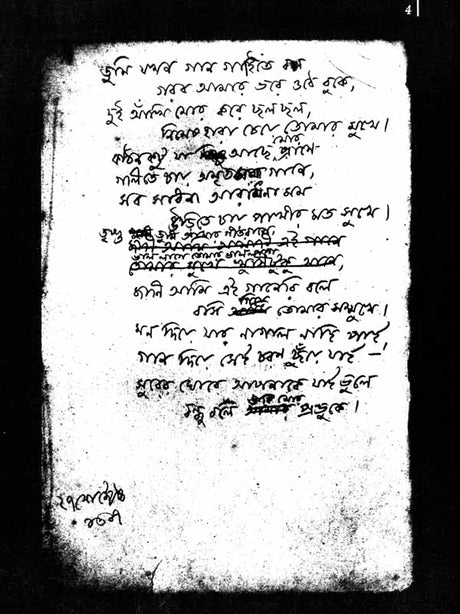 4
তুমি যখন গান গাহিতে বল
গরব আমার ভরে ওঠে বুকে,
দুই আঁখি মোর করে ছল ছল,
নিমেষহারা চেয়ে তোমার মুখে।
কঠিন কটু যা আছে মোর প্রাণে
গলিতে চায় অমৃতময় গানে,
সব সাধনা আরাধনা মম
উড়িতে চায় পাখীর মত সুখে।
তৃপ্ত তুমি আমার গীতরাগে,
ভাল লাগে তোমার ভাল লাগে,
জানি আমি এই গানেরি বলে
বসি গিয়ে তোমার সম্মুখে।
মন দিয়ে যার নাগাল নাহি পাই,
গান দিয়ে সেই চরণ ছুঁয়ে যাই —
সুরের ঘোরে আপনাকে যাই ভুলে
বন্ধু বলি ডাকি মোর প্রভুকে।
২৭শে